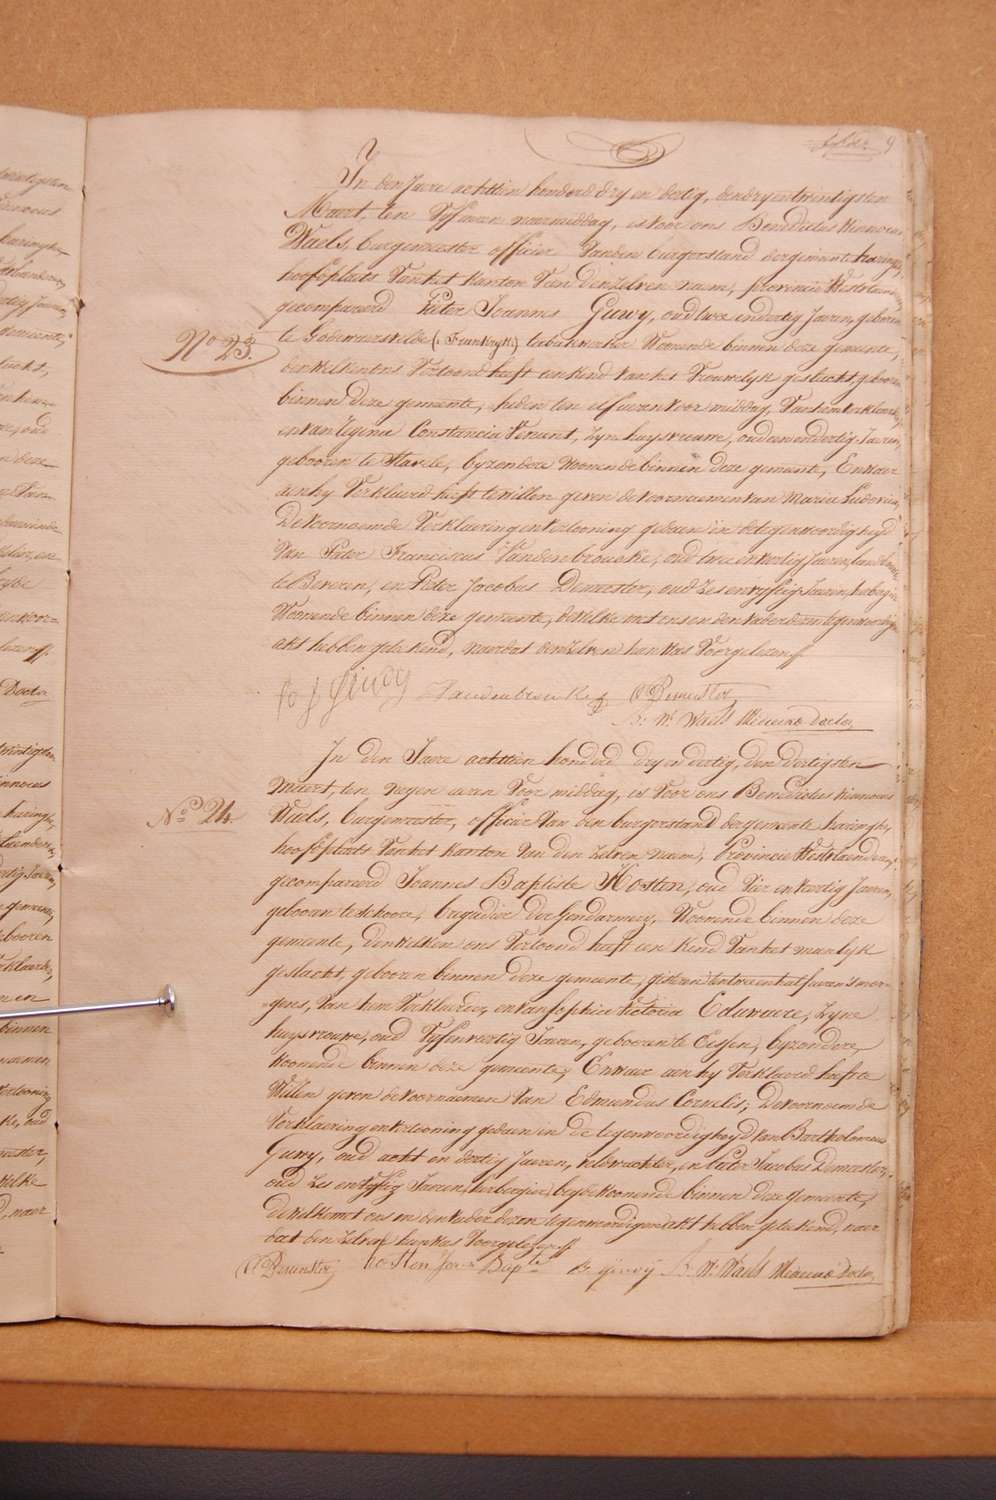 9
In den Jaere achttien honderd dry en dertig, den dry en twintigsten
Maert, ten vyf uren naermiddag, is voor ons Benedictus Winnocus
Waels, burgemeester officier van den burgerstand der gemeente haringhe,
hoofdplaets van het kanton van dien zelven naem, provincie Westvlaenderen
gecompareerd Pieter Joannes Guwy, oud twee en dertig Jaeren, geboren
No 23.
te Godewaersvelde (Frankryk) tabakwerker Woonende binnen deze gemeente,
denwelken ons vertoond heeft een kind van het vrouwelyk geslacht, geboren
binnen deze gemeente, heden ten elf uren voormiddag, van hem verklaerder
en van Eugenia Constancia Versent, zyne huysvrouwe, oud een en dertig Jaeren,
geboren te Stavele, byzondere Woonende binnen deze gemeente, En waer
aen hy verklaerd heeft te willen geven de voornaemen van Maria Ludovica,
De voornoemde verklaering en vertooning gedaen in de tegenwoordigheyd
van Pieter Franciscus Vandenbroucke, oud twee en veertig Jaeren,
te Beveren, en Pieter Jacobus Demeester, oud zes en vyftig Jaeren, herbergier
Woonende binnen deze gemeente, dewelke met ons en den vader dezen tegenwoordigen
akt hebben geteekend, naer dat den zelven hun was voorgelezen
P J Giwoy Vandenbroucke P Demester
B. W. Waels
In den Jaere achttien honderd dry en dertig, den dertigsten
Maert, ten negen uren voor middag, is voor ons Benedictus Winnocus
No 24.
Waels, burgemeester, officier van den burgerstand der gemeente haringhe,
hoofdplaets van het kanton van dien zelven naem, Provincie Westvlaenderen,
gecompareerd Joannes Baptiste Hosten, oud vier en veertig Jaeren,
geboren te schoore, brigadier der Gendarmery, Woonende binnen deze
gemeente, denwelken ons vertoond heeft een kind van het manlyk
geslacht, geboren binnen deze gemeente, gisteren ten twee en half uren 's mor-
gens, van hem verklaerder, en van Sophia Victoria Eduwaere, zyne
huysvrouwe, oud vyf en veertig Jaeren, geboren te Eessen, byzondere,
Woonende binnen deze gemeente, En waer aen hy verklaerd heeft te
willen geven de voornaemen van Edmundus Cornelis; De voornoemde
verklaering en vertooning gedaen in de tegenwoordigheyd van Bartholomeus
Guwy, oud acht en dertig Jaeren, veldwachter, en Pieter Jacobus Demeester,
oud zes en vyftig Jaeren, herbergier, beyde Woonende binnen deze gemeente,
dewelke met ons en den vader dezen tegenwoordigen akt hebben geteekend, naer
dat den zelven hun was voorgelezen
P Demester Hosten Jean Bapte B. giwoy B. W. Waels